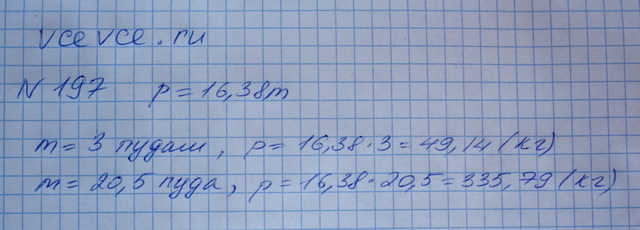 vcevce.ru
N 197 p = 16,38m
m = 3 пудам, p = 16,38·3 = 49,14 (кг)
m = 20,5 пуда, p = 16,38·20,5 = 335,79 (кг)